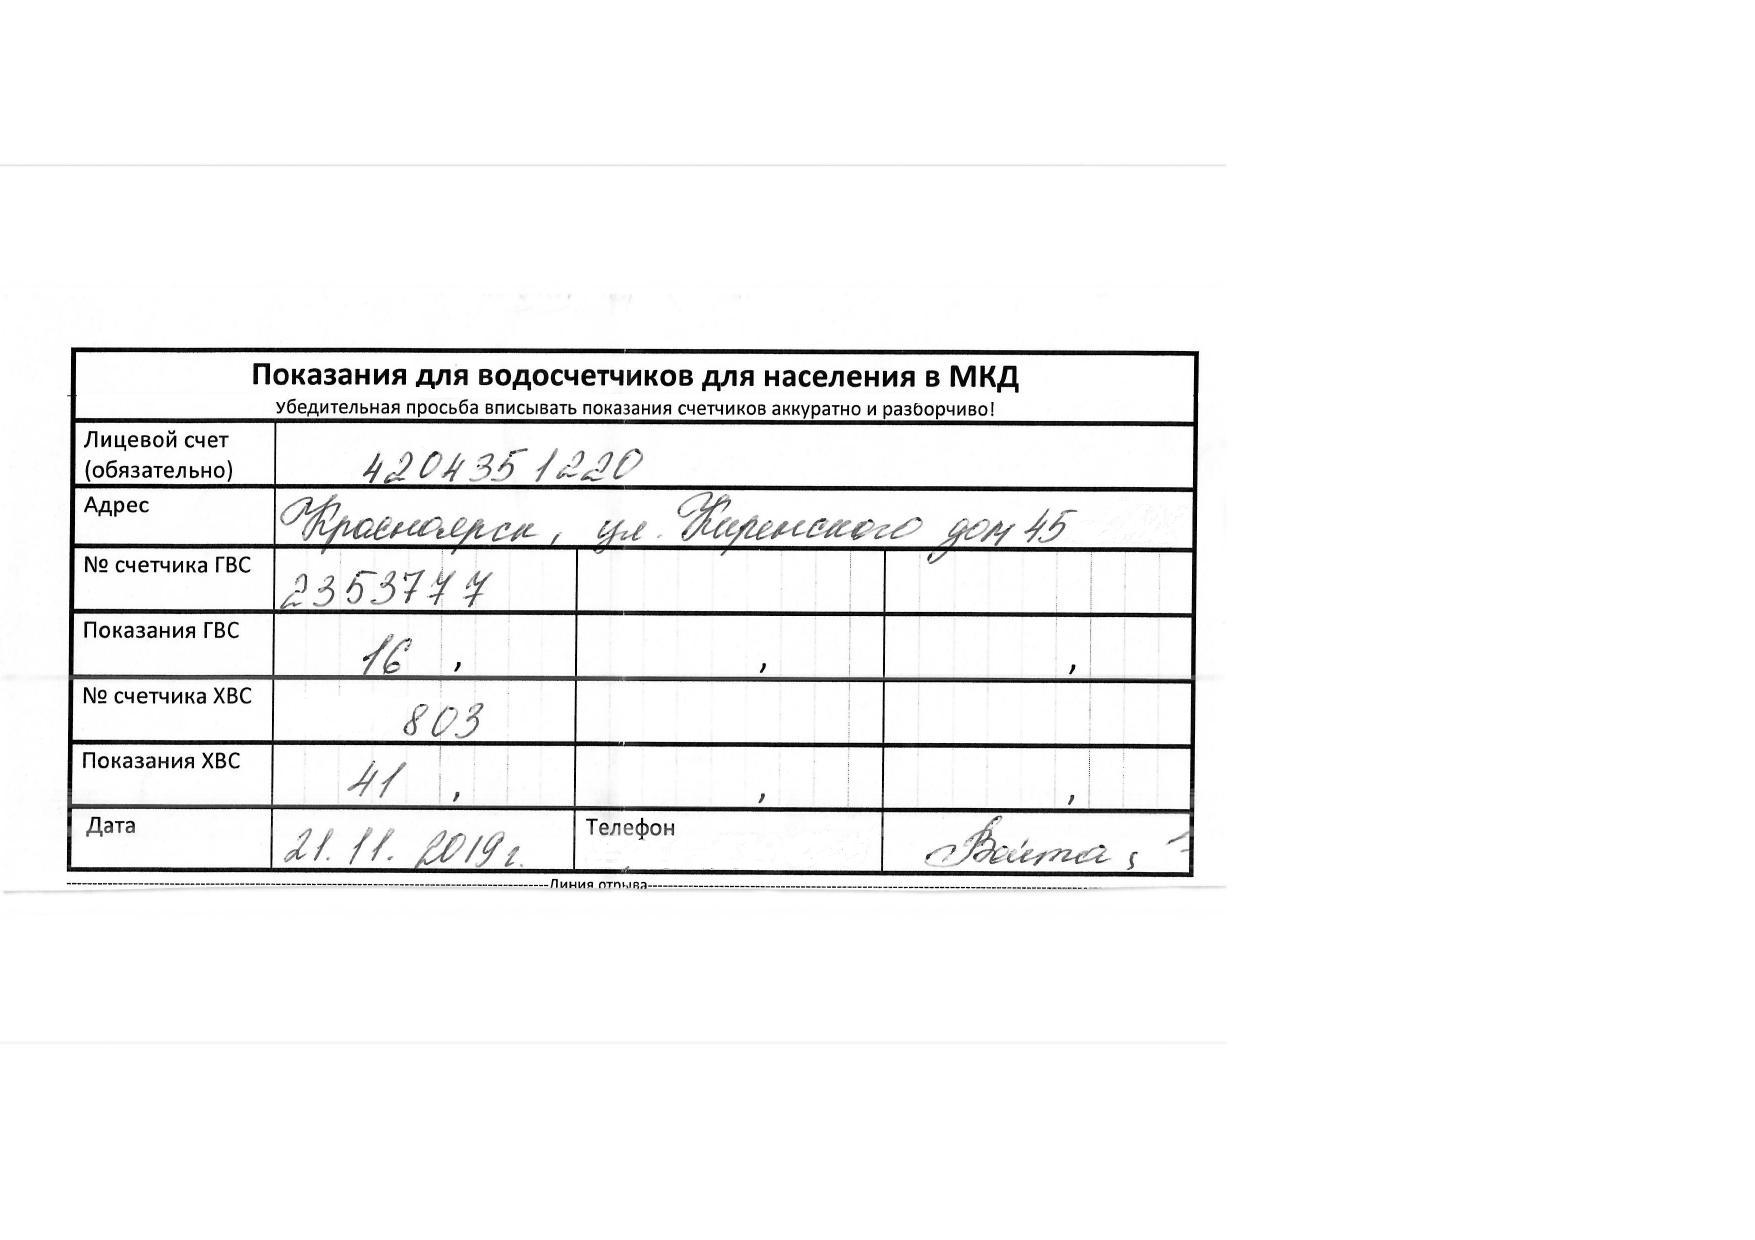 Показания для водосчетчиков для населения в МКД
Убедительная просьба вписывать показания счетчиков аккуратно и разборчиво!
Лицевой счет
(обязательно) 4204351220
Адрес Красноярск, ул. Киренского дом 45
№ счетчика ГВС 2353777
Показания ГВС 16 , , ,
№ счетчика ХВС 803
Показания ХВС 41 , , ,
Дата 21.11.2019г. Телефон
Линия отрыва